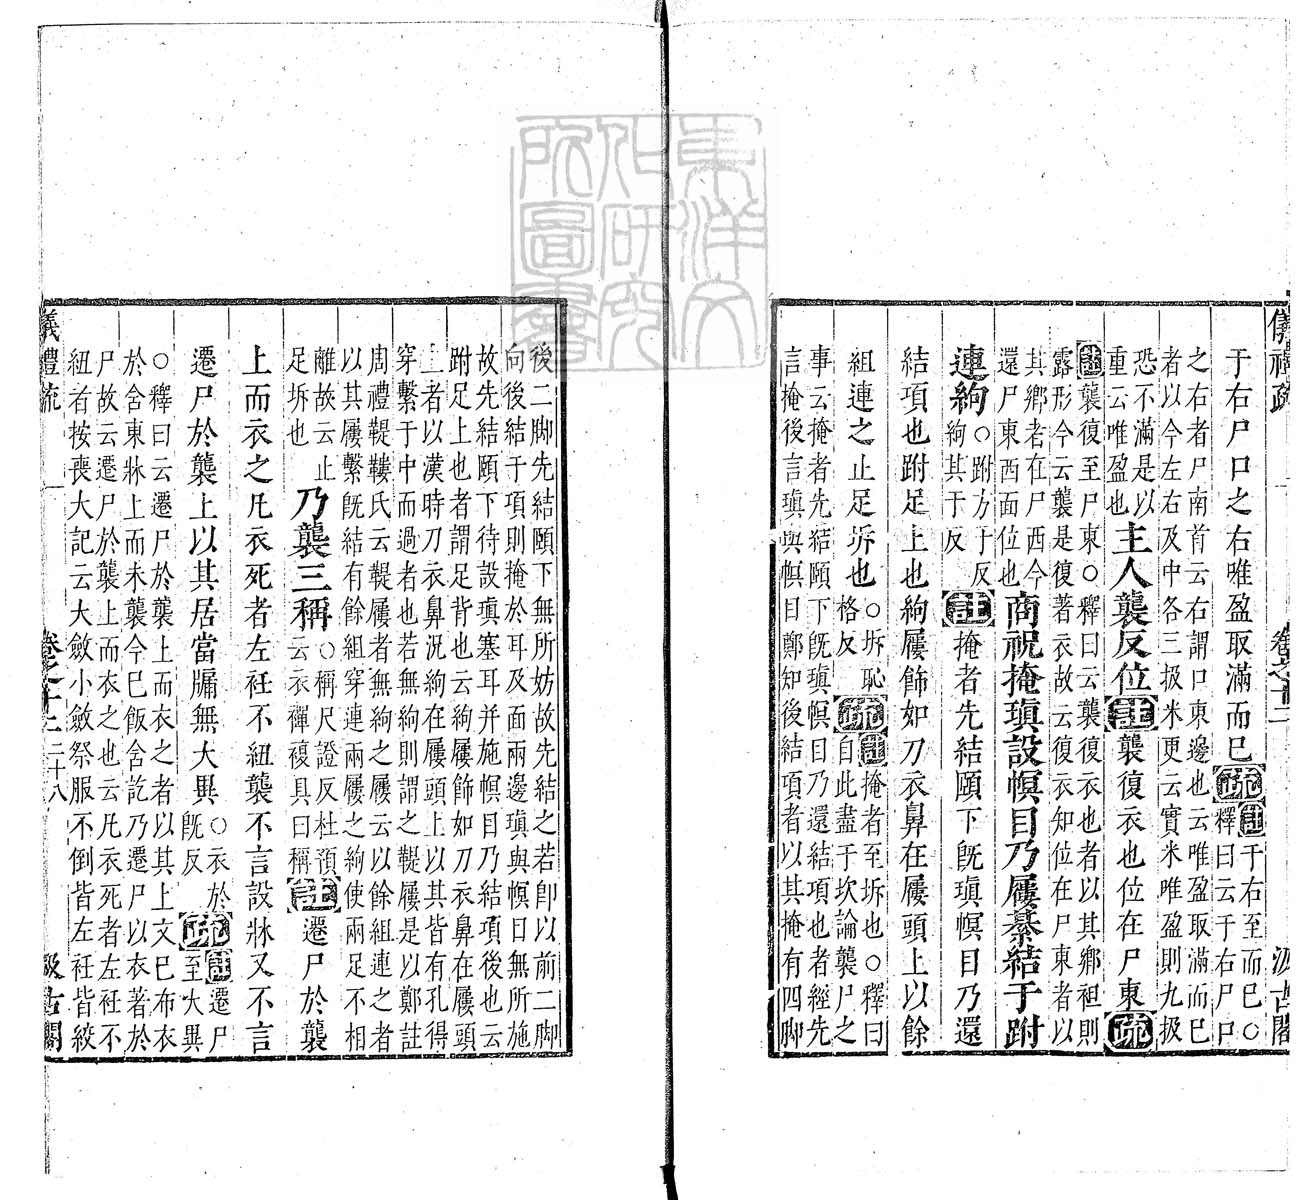 儀禮疏 卷之十二 汲古閣
于右尸口之右唯盈取滿而已疏註于右至而已○
釋曰云于右尸口
之右者尸南首云右謂口東邊也云唯盈取滿而已
者以今左右及中各三扱米更云實米唯盈則九扱
恐不滿是以
重云唯盈也
主人襲反位註襲復衣也位在尸東疏
註襲復至尸東○釋曰云襲復衣也者以其鄉袒則
露形今云襲是復著衣故云復衣知位在尸東者以
其鄉者在尸西今
還尸東西面位也
商祝掩瑱設幎目乃屨綦結于跗
連絇○跗方于反
絇其于反
註掩者先結頤下旣瑱幎目乃還
結項也跗足上也絇屨飾如刀衣鼻在屨頭上以餘
組連之止足坼也○坼恥
格反
疏註掩者至坼也○釋曰
自此盡于坎論襲尸之
事云掩者先結頤下旣瑱幎目乃還結項也者經先
言掩後言瑱與幎目鄭知後結項者以其掩有四脚
後二脚先結頤下無所妨故先結之若卽以前二脚
向後結于項則掩於耳及面兩邊瑱與幎目無所施
故先結頤下待設瑱塞耳并施幎目乃結項後也云
跗足上也者謂足背也云絇屨飾如刀衣鼻在屨頭
上者以漢時刀衣鼻況絇在屨頭上以其皆有孔得
穿繫于中而過者也若無絇則謂之鞮屨是以鄭註
周禮鞮鞻氏云鞮屨者無絇之屨云以餘組連之者
以其屨繫旣結有餘組穿連兩屨之絇使兩足不相
離故云止
足坼也
乃襲三稱○稱尺證反杜預
云衣襌複具曰稱
註遷尸於襲
上而衣之凡衣死者左衽不紐襲不言設牀又不言
遷尸於襲上以其居當牖無大異○衣於
旣反
疏註遷尸
至大異
○釋曰云遷尸於襲上而衣之者以其上文已布衣
於含東牀上而未襲今已飯含訖乃遷尸以衣著於
尸故云遷尸於襲上而衣之也云凡衣死者左衽不
紐者按喪大記云大斂小斂祭服不倒皆左衽皆絞
儀禮疏 卷之十二 二十八 汲古閣
東洋文化研究所圖書